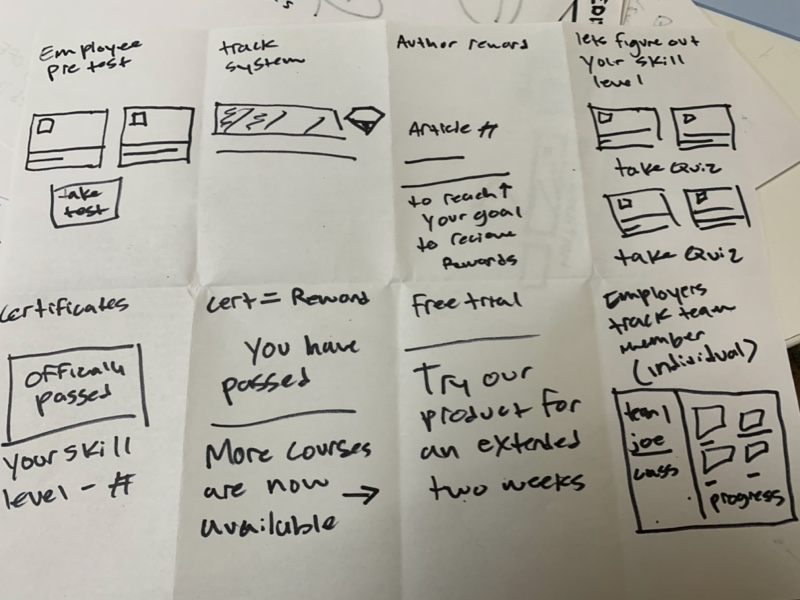 Employee
pre test
take
test
track
system
Author reward
Article #
to reach ↑
your goal
to recieve
Rewards
lets figure out
your skill
level
take Quiz
take Quiz
Certificates
Officially
passed
your skill
level - #
Cert = Reward
You have
passed
More courses
are now →
available
Free trial
Try our
product for
an extended
two weeks
Employers
track team
member
(individual)
team 1
joe
progress